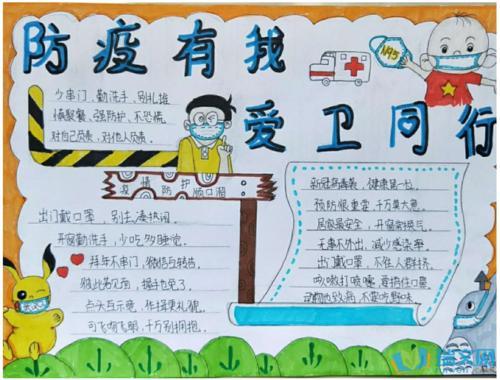 防疫有我
爱卫同行
N95
少串门、勤洗手、别扎堆
慎聚餐、强防护、不恐慌
对自己负责、对他人负责.
疫情防护顺口溜
出门戴口罩，别去凑热闹.
开窗勤洗手，少吃多睡觉.
拜年不串门，微信与转告.
彼此见面，握手也免了.
点头互示意，作揖更礼貌.
可飞吻飞期，千万别拥抱.
新冠病毒袭，健康第一位.
预防很重要，千万莫大意.
居家最安全，开窗常换气.
无事不外出，减少感染率.
出门戴口罩，不往人群挤.
咳嗽打喷嚏，要捂住口鼻.
动物也致病，不要吃野味.